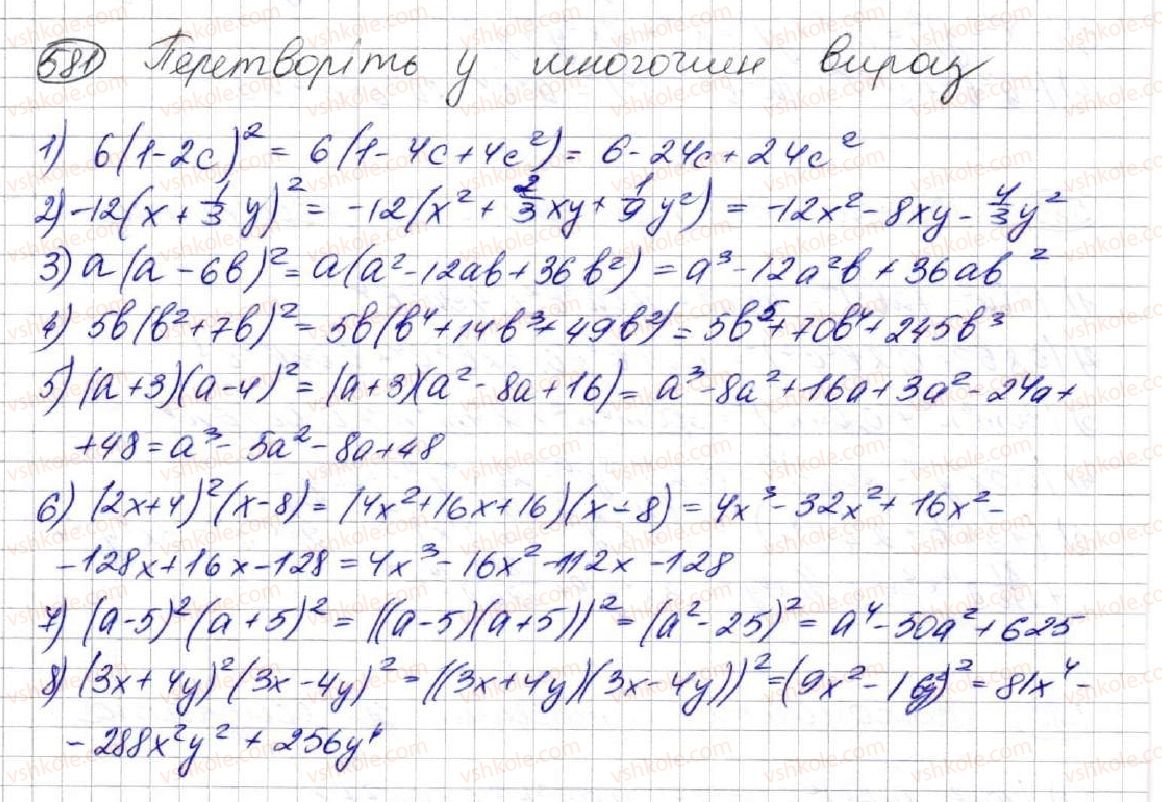 581 Перетворіть у многочлен вираз
1) 6(1-2c)² = 6(1-4c+4c²) = 6-24c+24c²
2) -12(x+1/3 y)² = -12(x²+2/3xy+1/9y²) = -12x²-8xy-4/3y²
3) a(a-6b)² = a(a²-12ab+36b²) = a³-12a²b+36ab²
4) 5b(b²+7b)² = 5b(b⁴+14b³+49b²) = 5b⁵+70b⁴+245b³
5) (a+3)(a-4)² = (a+3)(a²-8a+16) = a³-8a²+16a+3a²-24a+
+48 = a³-5a²-8a+48
6) (2x+4)²(x-8) = (4x²+16x+16)(x-8) = 4x³-32x²+16x²-
-128x+16x-128 = 4x³-16x²-112x-128
7) (a-5)²(a+5)² = ((a-5)(a+5))² = (a²-25)² = a⁴-50a²+625
8) (3x+4y)²(3x-4y)² = ((3x+4y)(3x-4y))² = (9x²-16y²)² = 81x⁴-
-288x²y²+256y⁴